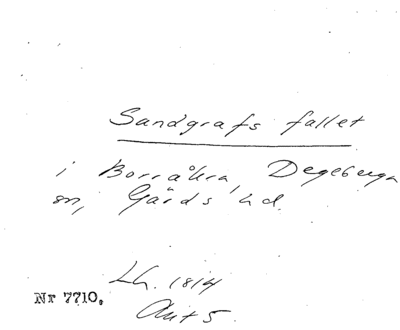 Sandgrafs fallet
i Borråkra, Degeberga
sn, Gärds hd.
Lh. 1814
Nr 7710,
Akt 5.